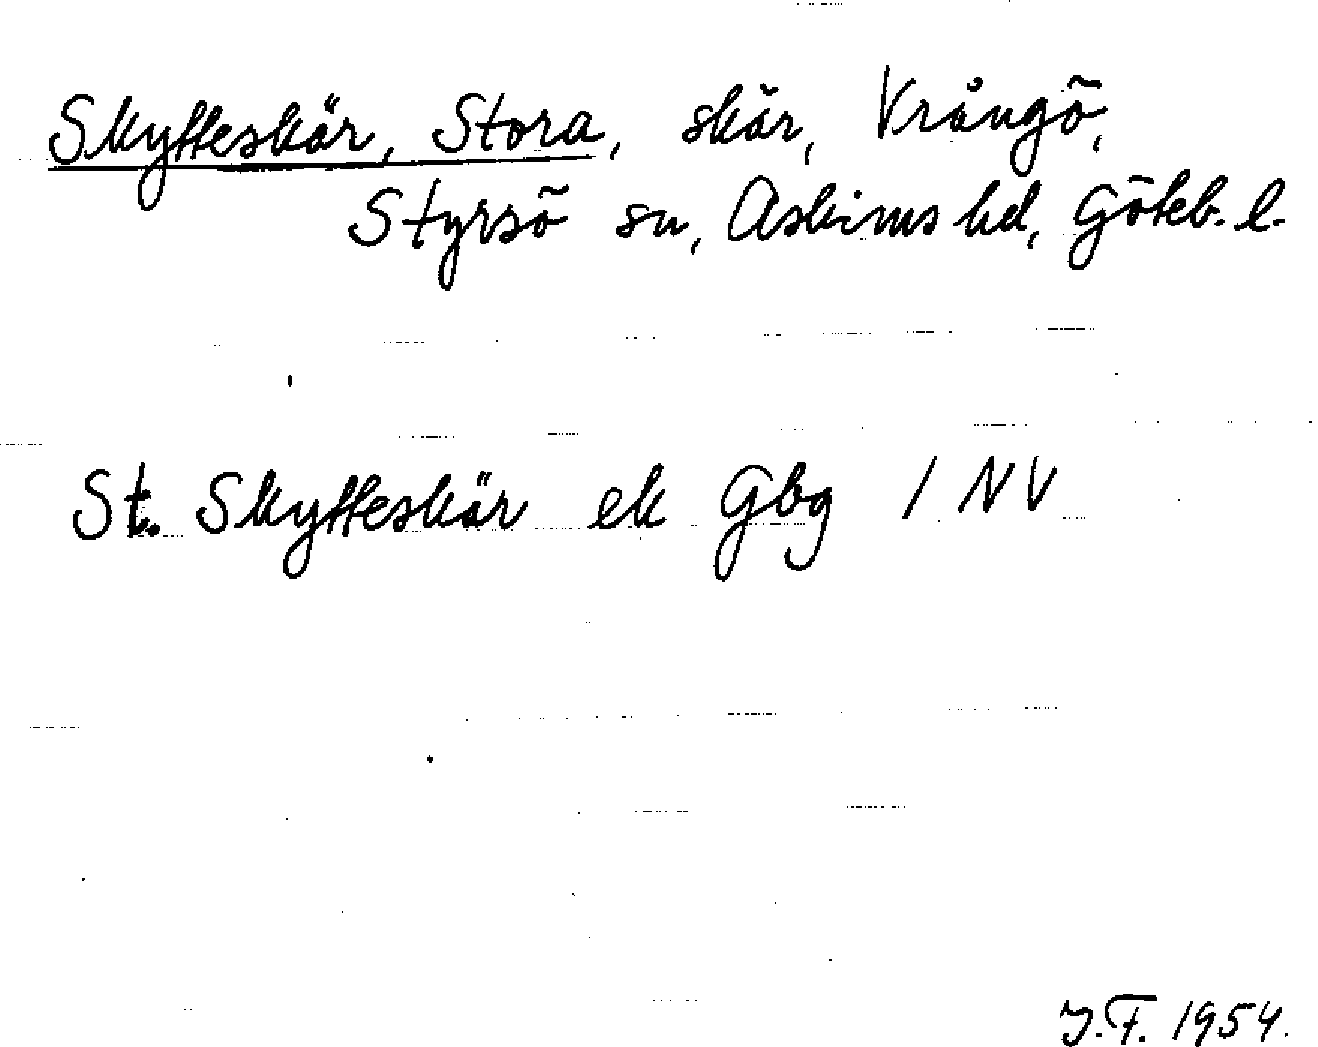 Skytteskär, Stora, skär, Vrångö,
Styrsö sn, Askims hd, Göteb. l.
St. Skytteskär ek Gbg 1 NV
J.F. 1954.